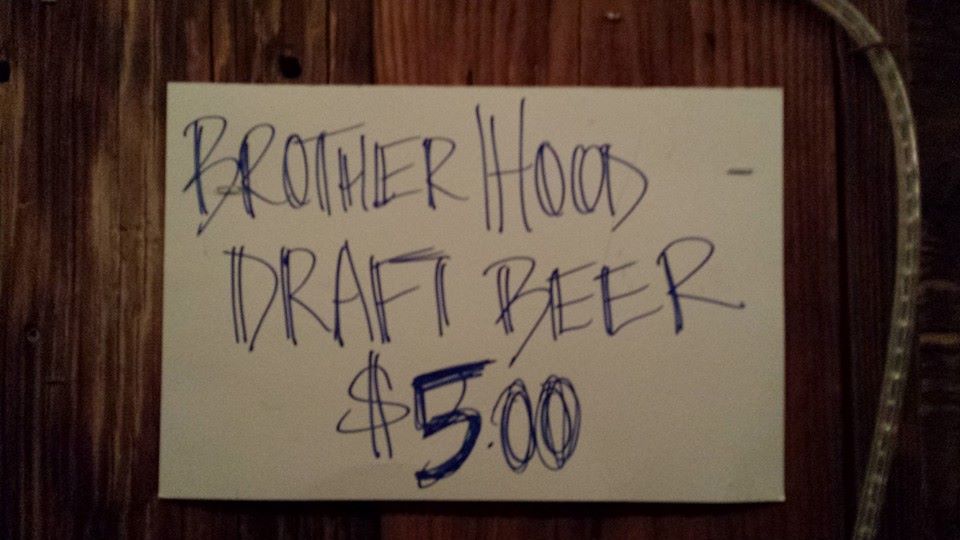 BROTHER HOOD -
DRAFT BEER
$5.00